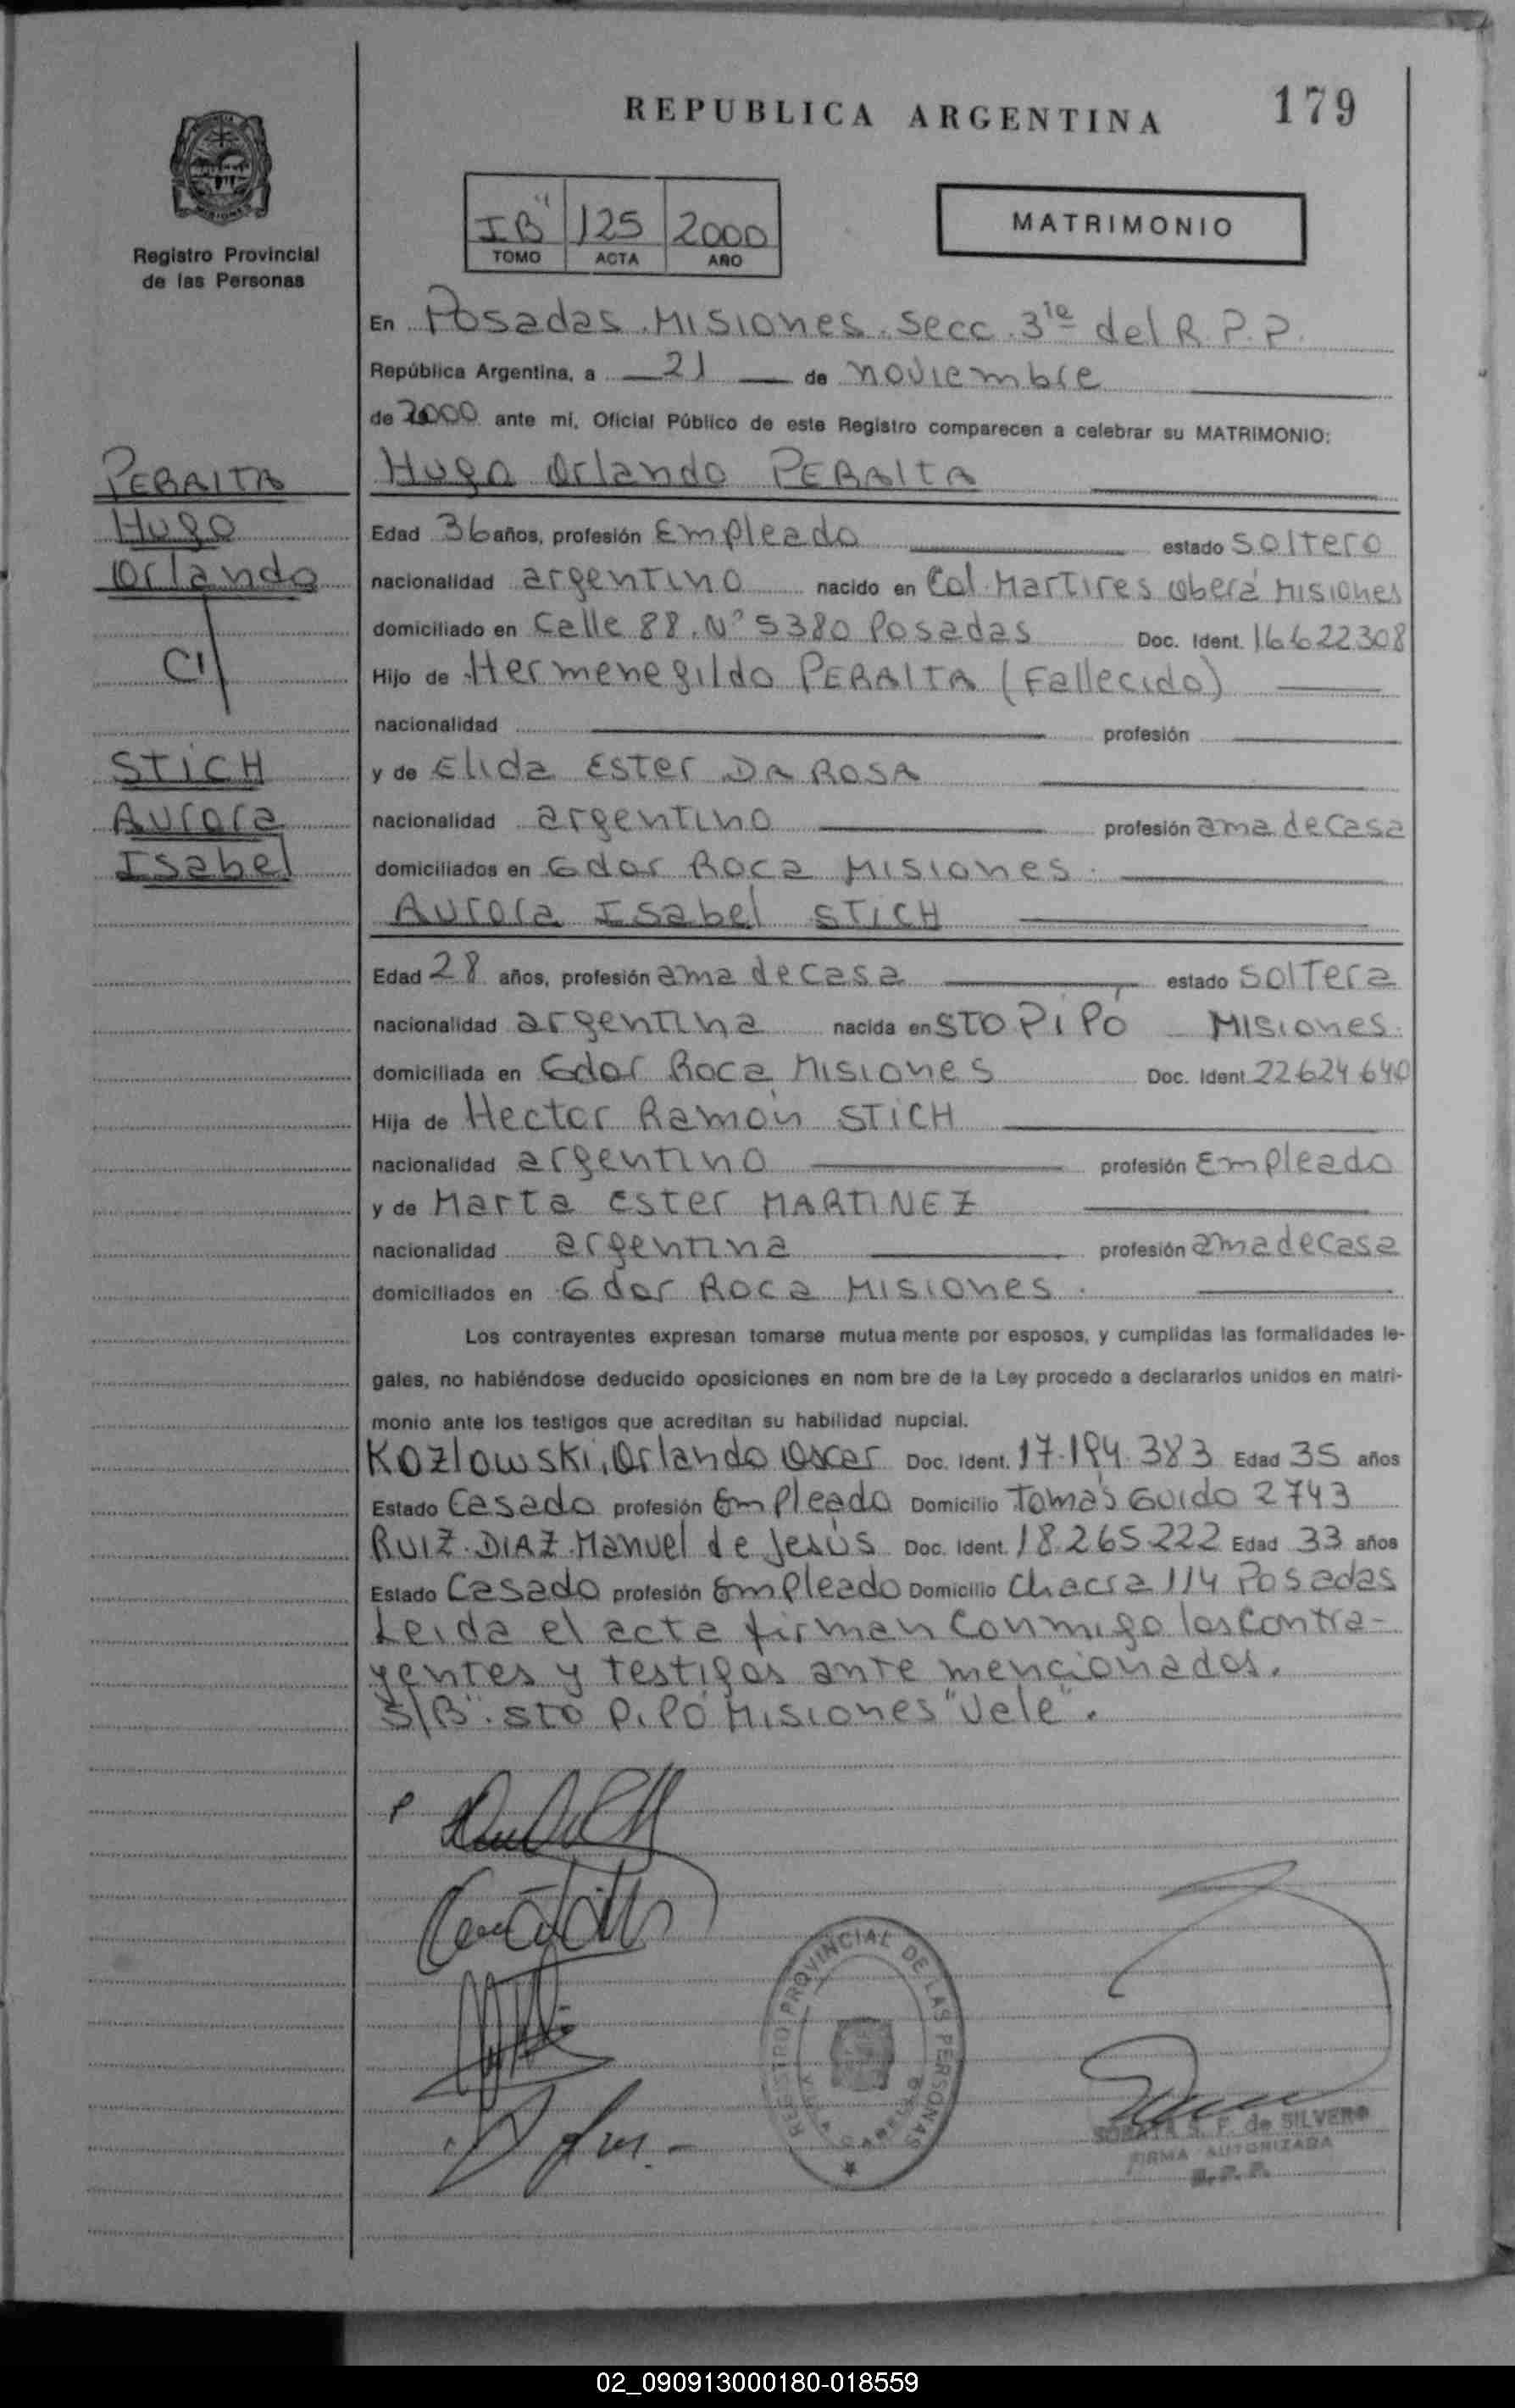 REPUBLICA ARGENTINA 179
MISIONES
Registro Provincial
de las Personas
IB" 125 2000
TOMO ACTA AÑO
MATRIMONIO
En Posadas Misiones Secc. 3ra del R.P.P.
República Argentina, a 21 de noviembre
de 2000 ante mi, Oficial Público de este Registro comparecen a celebrar su MATRIMONIO:
PERALTA
Hugo
Orlando
C1
STICH
Aurora
Isabel
Hugo Orlando PERALTA
Edad 36 años, profesión Empleado estado soltero
nacionalidad argentino nacido en Col. Martires Oberá Misiones
domiciliado en Calle 88 Nº 5380 Posadas Doc. Ident. 16622308
Hijo de Hermenegildo PERALTA (Fallecido)
nacionalidad profesión
y de Elida Ester DA ROSA
nacionalidad argentino profesión ama de casa
domiciliados en Gdor Roca Misiones.
Aurora Isabel STICH
Edad 28 años, profesión ama de casa estado soltera
nacionalidad argentina nacida en STO PiPó Misiones.
domiciliada en Gdor Roca Misiones Doc. Ident. 22624640
Hija de Hector Ramón STICH
nacionalidad argentino profesión Empleado
y de Marta Ester MARTINEZ
nacionalidad argentina profesión ama de casa
domiciliados en Gdor Roca Misiones.
Los contrayentes expresan tomarse mutua mente por esposos, y cumplidas las formalidades le-
gales, no habiéndose deducido oposiciones en nom bre de la Ley procedo a declararlos unidos en matri-
monio ante los testigos que acreditan su habilidad nupcial.
KOZlowski, Orlando Oscar Doc. Ident. 17.194.383 Edad 35 años
Estado Casado profesión Empleado Domicilio Tomás Guido 2743
RUIZ DIAZ Manuel de Jesús Doc. Ident. 18.265.222 Edad 33 años
Estado Casado profesión Empleado Domicilio Chacra 114 Posadas
Leida el acta firman conmigo los contra-
yentes y testigos ante mencionados.
S/B": STO PiPó Misiones "Vale".
REGISTRO PROVINCIAL DE LAS PERSONAS
S. F. de SILVERO
FIRMA AUTORIZADA
R. P. P.
02_090913000180-018559